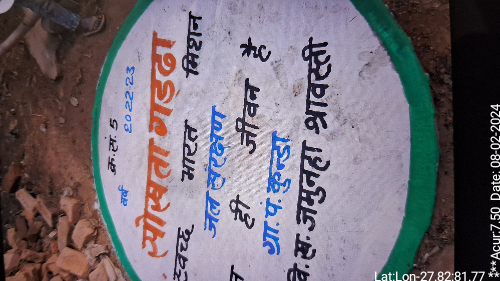 क्र.सं. 5
वर्ष 2022-23
सोख्ता गड्ढा
स्वच्छ भारत मिशन
जल संरक्षण
ही जीवन है
ग्रा.पं. कुन्डा
वि.ख. जमुनहा श्रावस्ती
Lat:Lon-27.82:81.77
***Acur7.50 Date: 08-02-2024